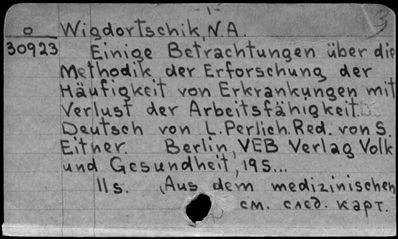 -1-
3
o Wigdortschik, N.A.
30923 Einige Betrachtungen über die
Methodik der Erforschung der
Häufigkeit von Erkrankungen mit
Verlust der Arbeitsfähigkeit.
Deutsch von L. Perlich. Red. von S.
Eitner. Berlin, VEB Verlag Volk
und Gesundheit, 195...
11s. (Aus dem medizinischen
см. след. карт.